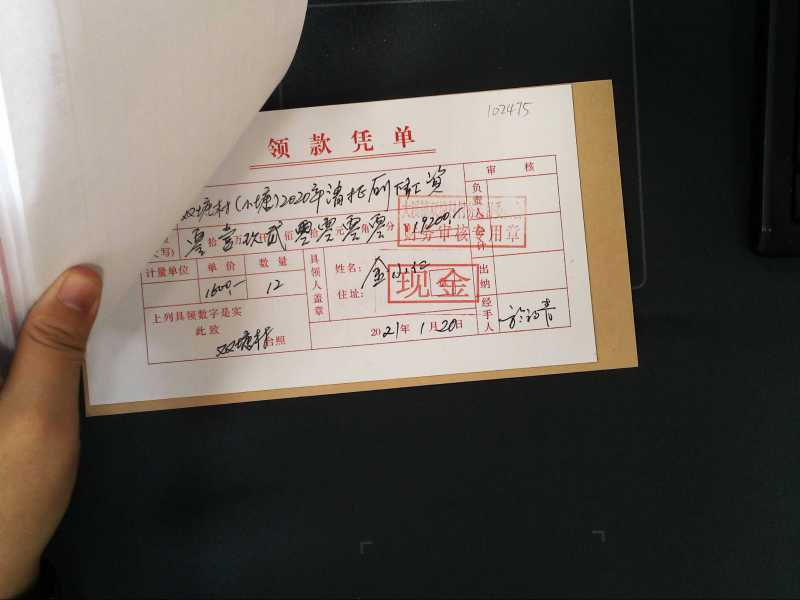 102475
领款凭单
审 核
双塘村(小塘)2020年清扫厕所工资
负责人
写) 零拾壹万玖仟贰佰零拾零元零角零分 ¥19200.-
财务审核专用章
会计
计量单位 单价 数量
1600.- 12
具领人盖章
姓名: 金
住址:
现金
出纳
上列具领数字是实
此致
双塘村 台照
2021年1月20日
经手人